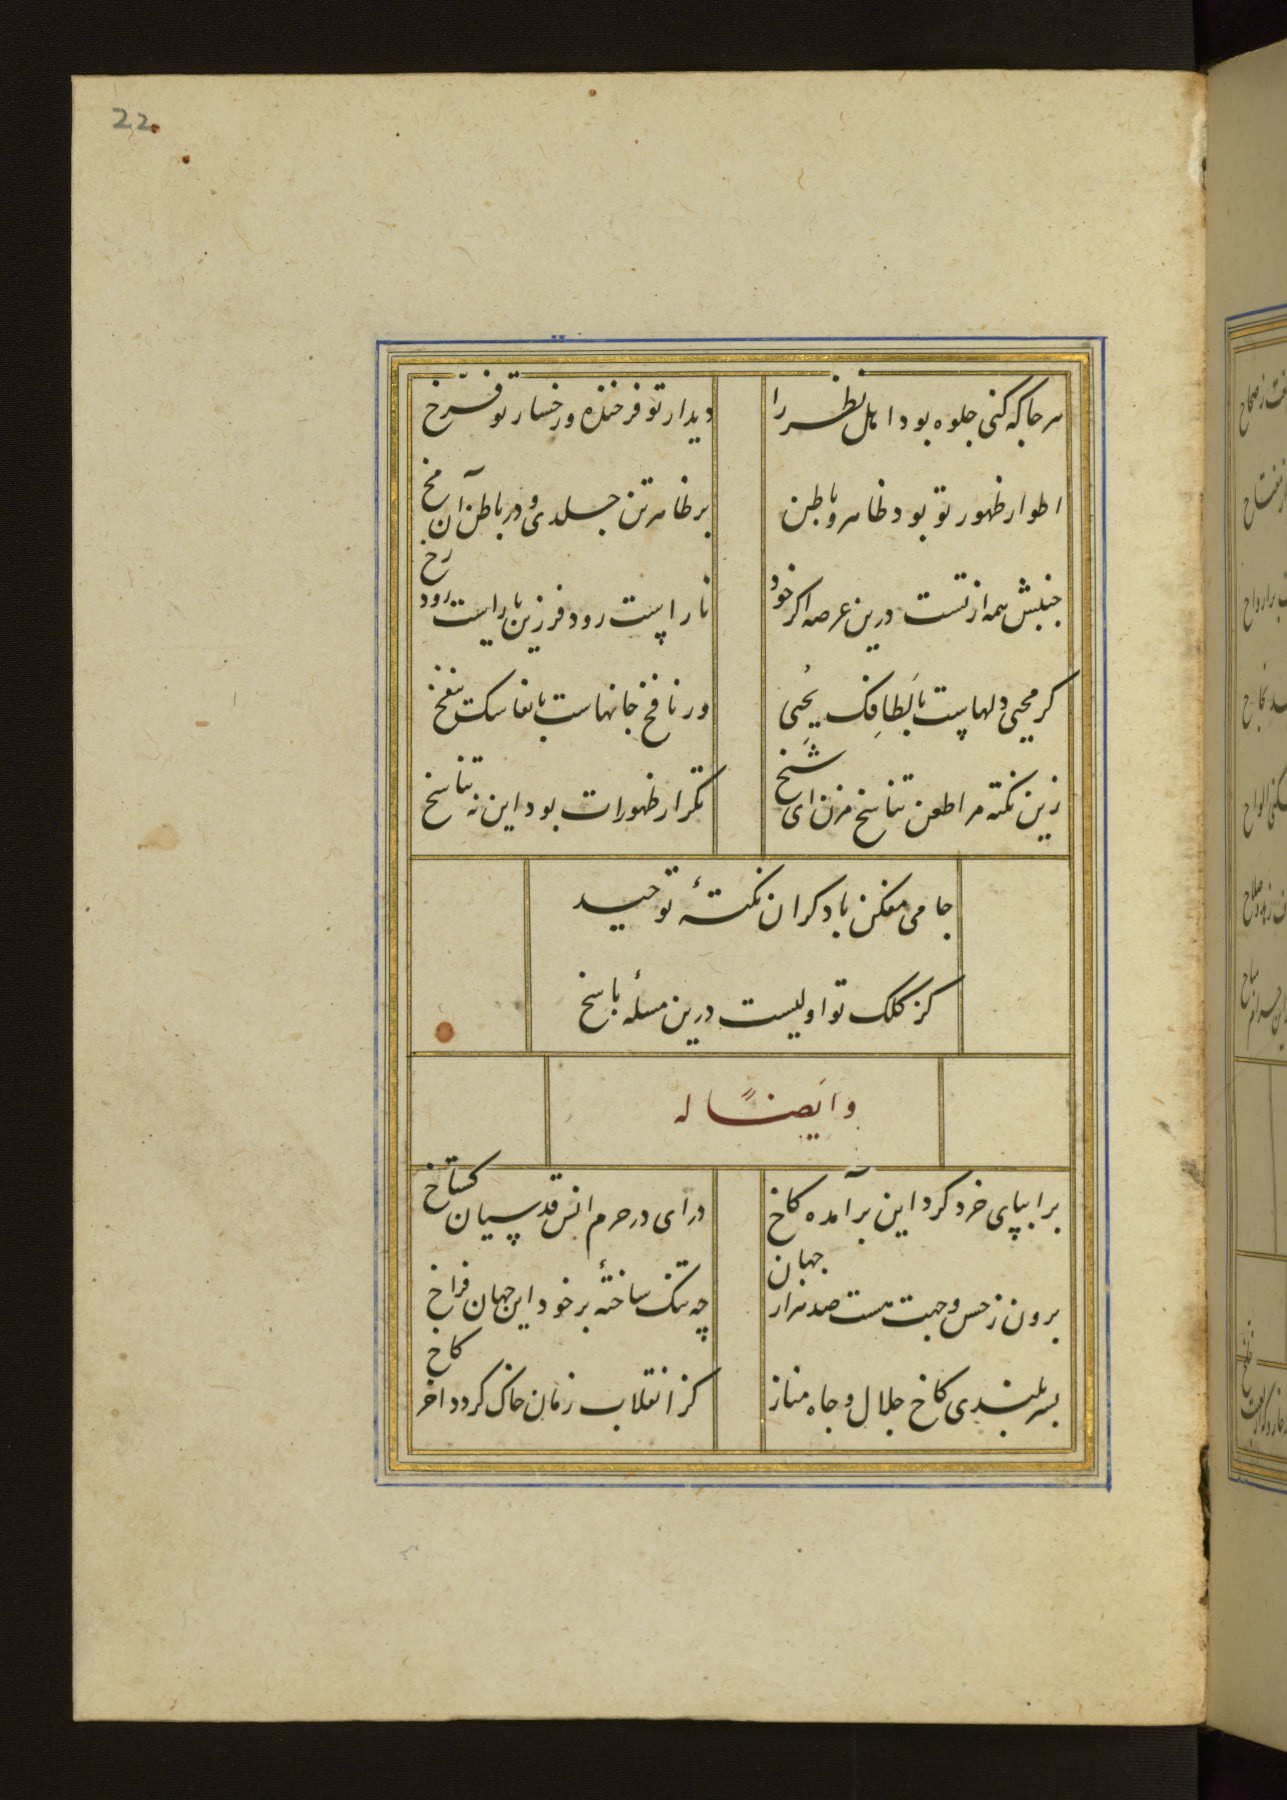 22
هر جا که کنی جلوه بود اهل نظر را
دیدار تو فرخنده و رخسار تو فرّخ
اطوار ظهور تو بود ظاهر و باطن
بر ظاهر تن جلدی و در باطن آن مخ
جنبش همه از تست درین عرصه اکر خود
ناراست رود فرزین یا راست رود رخ
کر محیی دلهاست بالطافک یُحیِی
ور نافخ جانهاست بانفاسک ینفخ
زین نکته مرا طعن تناسخ مزن ای شیخ
تکرار ظهورات بود این نه تناسخ
جامی مفکن با دکران نکتهٔ توحید
کز کلک تو اولیست درین مسئله پاسخ
و ایضاً له
برا بپای خرد کرد این برآمده کاخ
درای در حرم انس قدسیان کستاخ
برون ز حس و جهت هست صد هزار جهان
چه تنک ساختهٔ بر خود این جهان فراخ
بسر بلندی کاخ جلال و جاه مناز
کز انقلاب زمان خاک کردد اخر کاخ